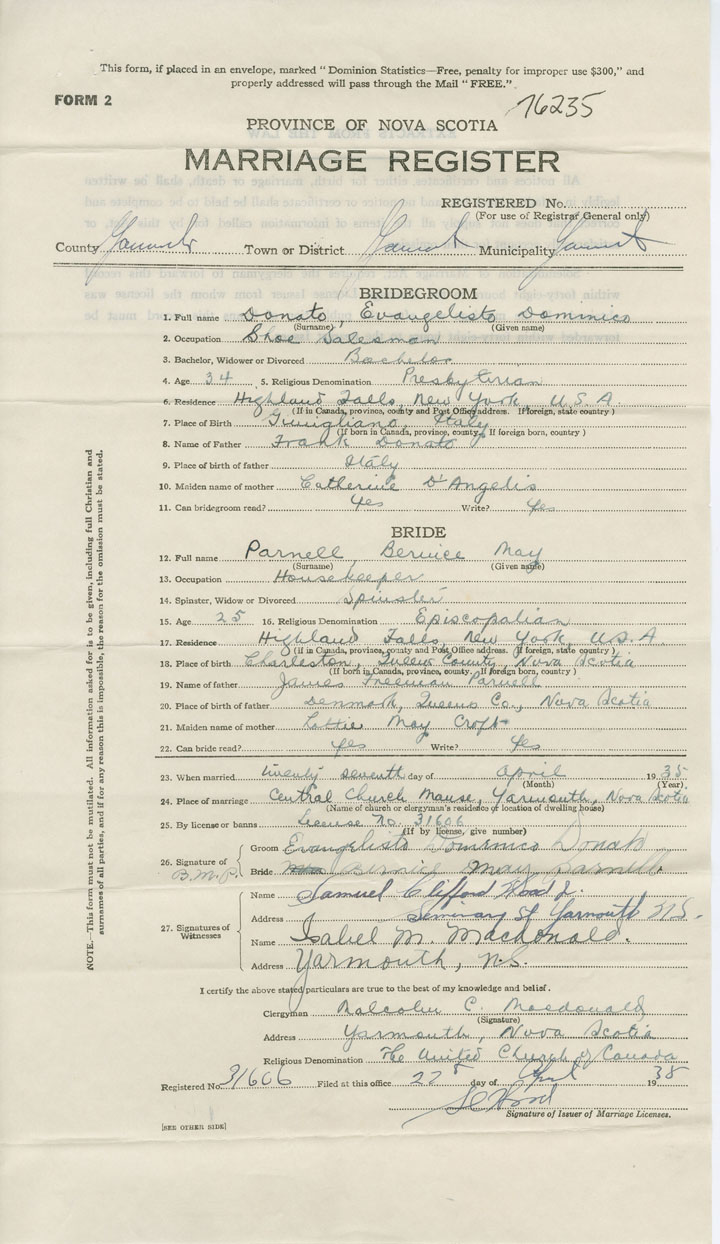 This form, if placed in an envelope, marked "Dominion Statistics—Free, penalty for improper use $300," and
properly addressed will pass through the Mail "FREE."
FORM 2
76235
PROVINCE OF NOVA SCOTIA
MARRIAGE REGISTER
REGISTERED No.
(For use of Registrar General only)
County Yarmouth Town or District Yarmouth Municipality Yarmouth
BRIDEGROOM
1. Full name Donato, Evangelisto Dominico
(Surname) (Given name)
2. Occupation Shoe Salesman
3. Bachelor, Widower or Divorced Bachelor
4. Age 34 5. Religious Denomination Presbyterian
6. Residence Highland Falls, New York, U.S.A.
(If in Canada, province, county and Post Office address. If foreign, state country)
7. Place of Birth Italy
(If born in Canada, province, county. If foreign born, country)
8. Name of Father Frank Donato
9. Place of birth of father Italy
10. Maiden name of mother Catherine D'Angelis
11. Can bridegroom read? Yes Write? Yes
BRIDE
12. Full name Parnell, Bernice May
(Surname) (Given name)
13. Occupation Housekeeper
14. Spinster, Widow or Divorced Spinster
15. Age 25 16. Religious Denomination Episcopalian
17. Residence Highland Falls, New York, U.S.A.
(If in Canada, province, county and Post Office address. If foreign, state country)
18. Place of birth Charleston, Queens County, Nova Scotia
(If born in Canada, province, county. If foreign born, country)
19. Name of father James Freeman Parnell
20. Place of birth of father Denmark, Queens Co., Nova Scotia
21. Maiden name of mother Lottie May Croft
22. Can bride read? Yes Write? Yes
23. When married twenty seventh day of April 1935
(Month) (Year)
24. Place of marriage Central Church Manse, Yarmouth, Nova Scotia
(Name of church or clergyman's residence or location of dwelling house)
25. By license or banns License No. 31606
(If by license, give number)
26. Signature of
Groom Evangelisto Dominico Donato
B.M.P. Bride Bernice May Parnell
27. Signatures of Witnesses
Name Samuel Clifford Hood Jr.
Address Seminary St Yarmouth N.S.
Name Isabel M. Macdonald.
Address Yarmouth, N.S.
I certify the above stated particulars are true to the best of my knowledge and belief.
Clergyman Malcolm C. Macdonald
(Signature)
Address Yarmouth, Nova Scotia
Religious Denomination The United Church of Canada
Registered No. 31606 Filed at this office 27 day of April 1935
S C Hood
Signature of Issuer of Marriage Licenses.
[SEE OTHER SIDE]
NOTE.—This form must not be mutilated. All information asked for is to be given, including full Christian and
surnames of all parties, and if for any reason this is impossible, the reason for the omission must be stated.